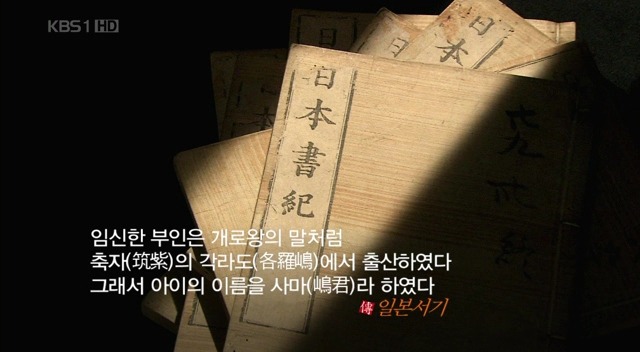 KBS1 HD
日
日本
日本書紀
임신한 부인은 개로왕의 말처럼
축자(筑紫)의 각라도(各羅嶋)에서 출산하였다
그래서 아이의 이름을 사마(嶋君)라 하였다
傳 일본서기